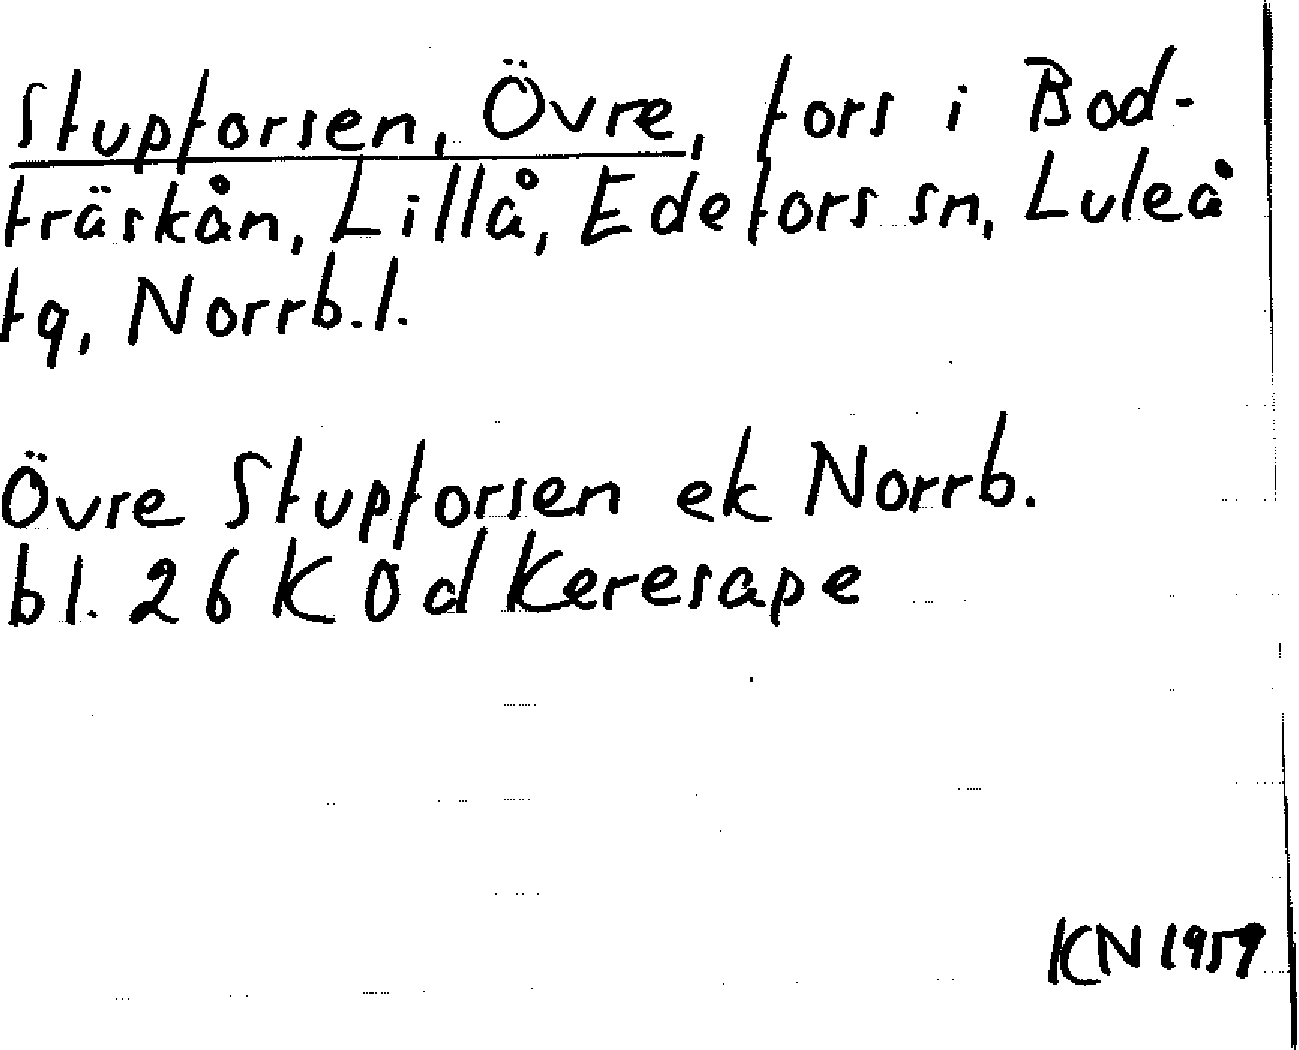 Stupforsen, Övre, fors i Bod-
träskån, Lillå, Edefors sn, Luleå
tg, Norrb.l.
Övre Stupforsen ek Norrb.
bl. 26 K 0 d Keresape
KN 1959